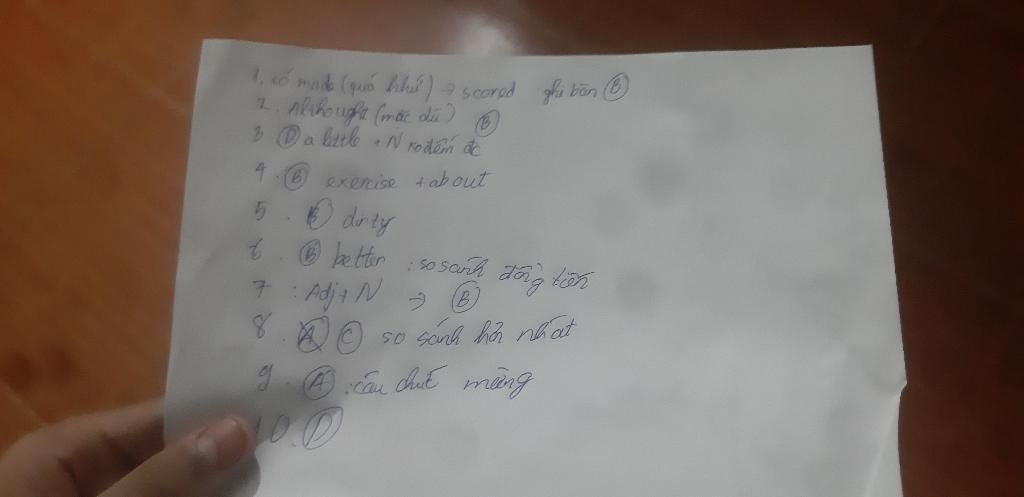 1. có made (quá khứ) → scored ghi bàn (B)
2. Although (mặc dù) (B)
3 (D) a little + N ko đếm đc
4. (B) exercise + about
5. (B) dirty
6. (B) better : so sánh đồng tiến
7 : Adj + N → (B)
8. (A) (C) so sánh hơn nhất
9. (A) : câu chúc mừng
10. (D)